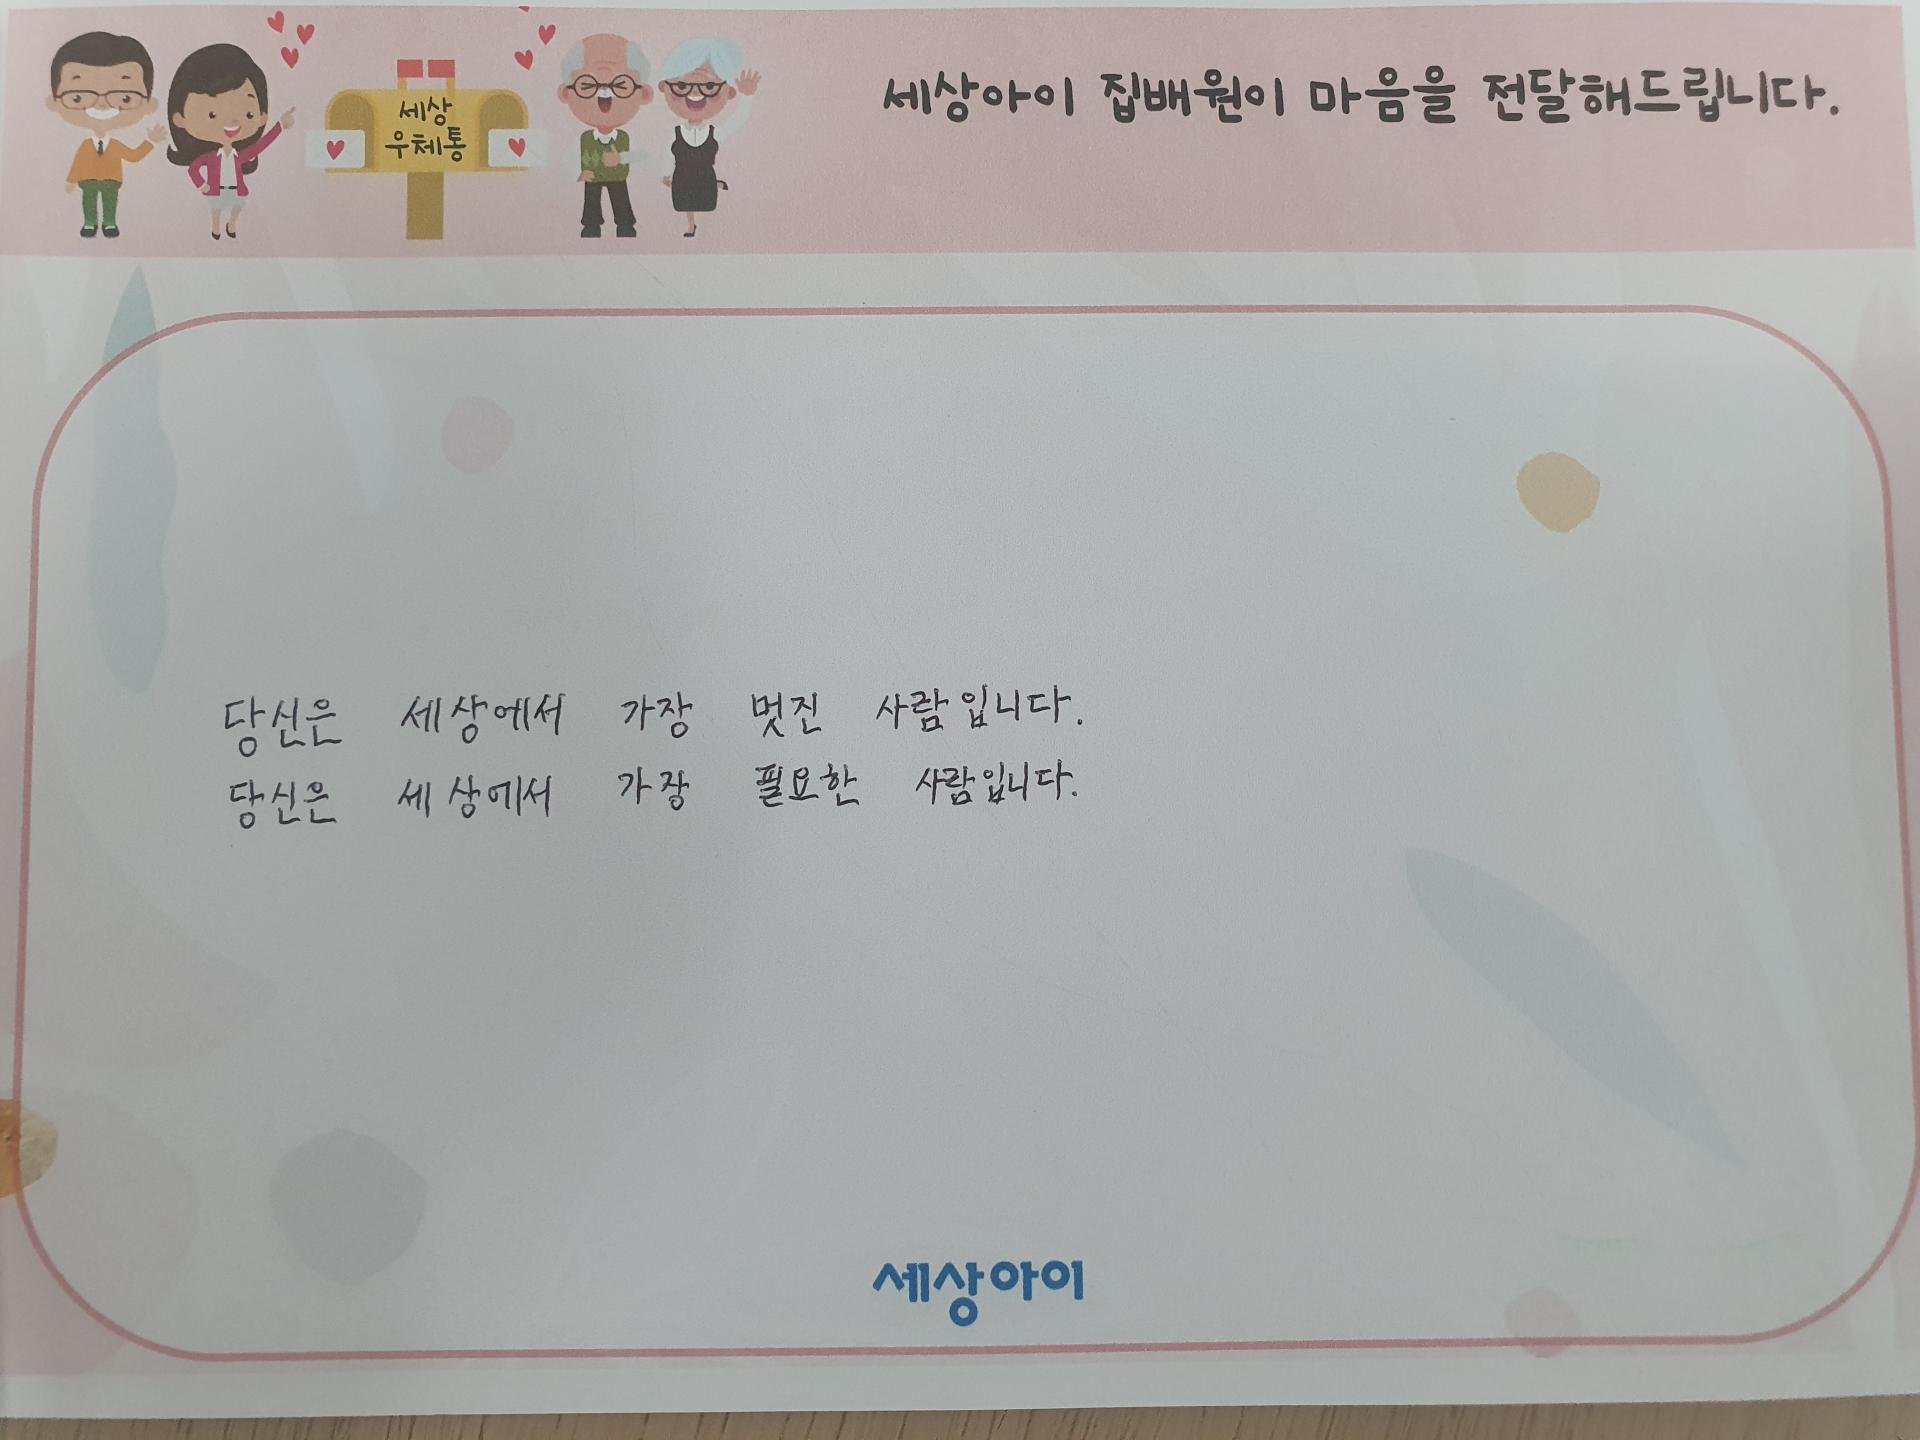 세상
우체통
세상아이 집배원이 마음을 전달해드립니다.
당신은 세상에서 가장 멋진 사람입니다.
당신은 세상에서 가장 필요한 사람입니다.
세상아이